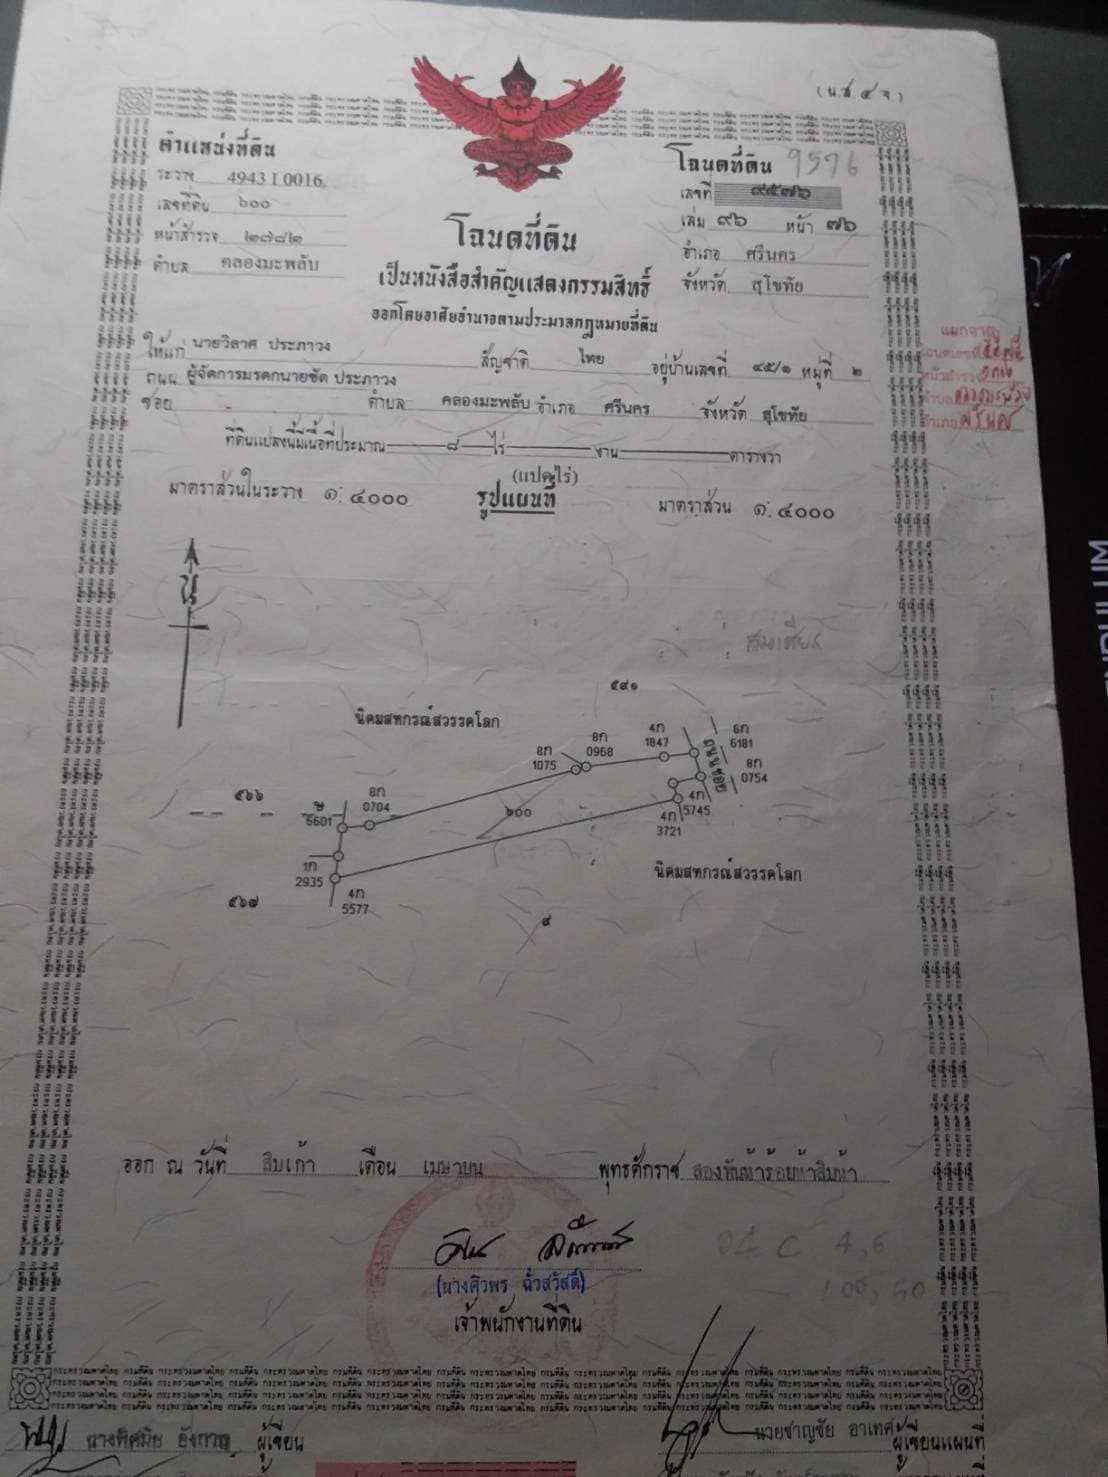 (น.ส. ๔ จ)
ตำแหน่งที่ดิน
ระวาง 4943 I 0016
เลขที่ดิน ๖๐๐
หน้าสำรวจ ๒๗๘๒
ตำบล คลองมะพลับ
โฉนดที่ดิน 9576
เลขที่ ๙๕๗๖
เล่ม ๙๖ หน้า ๗๖
อำเภอ ศรีนคร
จังหวัด สุโขทัย
โฉนดที่ดิน
เป็นหนังสือสำคัญแสดงกรรมสิทธิ์
ออกโดยอาศัยอำนาจตามประมวลกฎหมายที่ดิน
ให้แก่ นายวิลาศ ประภาวง สัญชาติ ไทย อยู่บ้านเลขที่ ๔๕/๑ หมู่ที่ ๒
ถนน ผู้จัดการมรดกนายชัด ประภาวง
ซอย ตำบล คลองมะพลับ อำเภอ ศรีนคร จังหวัด สุโขทัย
ที่ดินแปลงนี้มีเนื้อที่ประมาณ ๘ ไร่ งาน ตารางวา
(แปดไร่)
มาตราส่วนในระวาง ๑:๔๐๐๐ รูปแผนที่ มาตราส่วน ๑:๔๐๐๐
น
๕๙๑
นิคมสหกรณ์สวรรคโลก
4ก
1847
6ก
6181
8ก
0968
8ก
1075
ถนนซอย
8ก
0754
๕๖๖
8ก
0704
6601
๖๐๐
4ก
5745
4ก
3721
1ก
2935
นิคมสหกรณ์สวรรคโลก
๕๖๗
4ก
5577
๙
ออก ณ วันที่ สิบเก้า เดือน เมษายน พุทธศักราช สองพันห้าร้อยห้าสิบห้า
(นางศิวพร ฉ่ำสวัสดิ์)
เจ้าพนักงานที่ดิน
ผู้เขียน
นายชาญชัย อาเทศ ผู้เขียนแผนที่